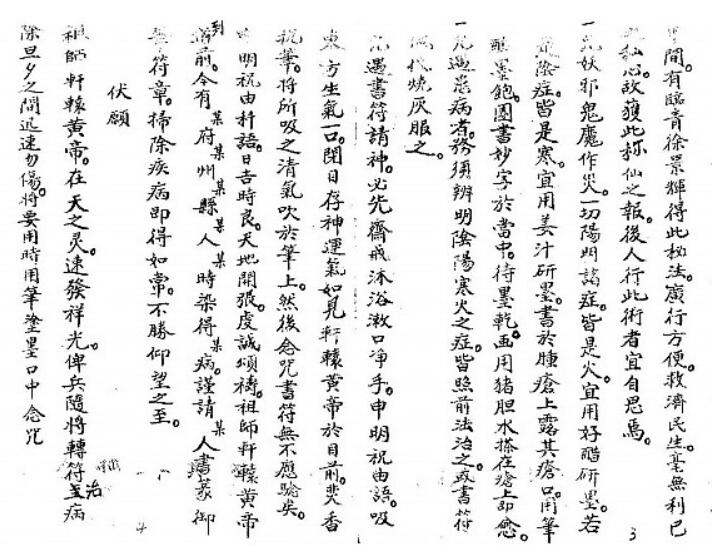 間。有臨青徐景輝得此秘法。廣行方便。救濟民生。毫無利己
私心。故獲此祢仙之報。後人行此術者。宜自思焉。
一凡妖邪鬼魔作災。一切陽明諸症。皆是火。宜用好醋研墨。若
是陰症。皆是寒。宜用姜汁研墨。書於腫瘡上。露其瘡口。用筆
醮墨飽。圈書妙字於當中。待墨乾。再用猪胆水搽在瘡上。即愈。
一凡遇患病者。務須辨明陰陽寒火之症。皆照前法治之。或書符
燒灰服之。
凡遇書符請神。必先齋戒沐浴。漱口净手。申明祝由語。吸
東方生氣一口。閉目存神運氣。如見軒轅黄帝於目前。焚香
祝筆。將所吸之清氣吹於筆上。然後念咒書符。無不應驗矣。
申明祝由科語。日吉時良。天地開張。虔誠頌禱。祖師軒轅黄帝
到前。今有某府某州某縣某人某時染得某病。謹請某人書篆御
符章。掃除疾病。即得如常。不勝仰望之至。
伏願
祖師軒轅黄帝。在天之灵。速發祥光。俾兵隨將轉。符至病
治
除。旦夕之間。迅速勿傷。將要用時。用筆塗墨。口中念咒
3
4